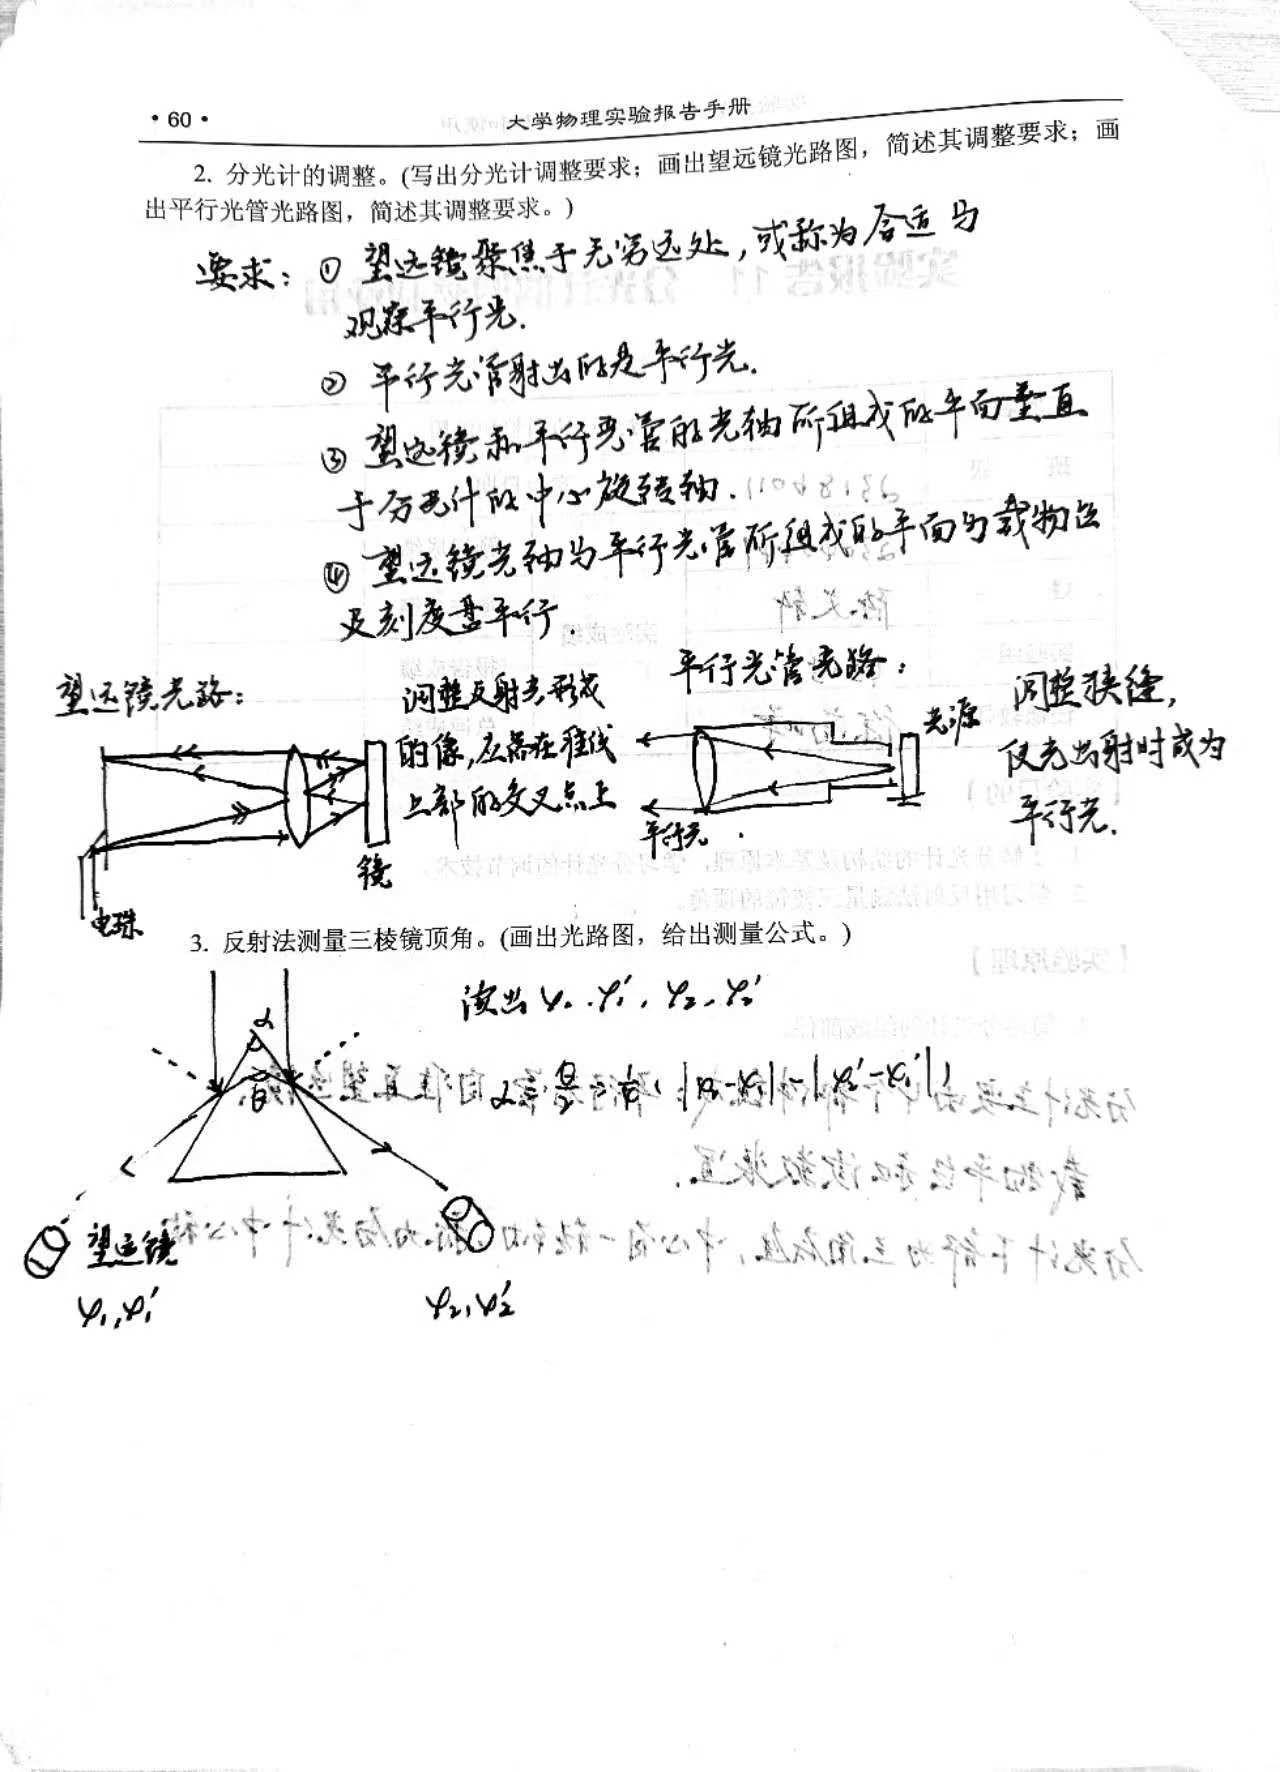 ·60·
大学物理实验报告手册
2. 分光计的调整。(写出分光计调整要求；画出望远镜光路图，简述其调整要求；画
出平行光管光路图，简述其调整要求。)
要求：① 望远镜聚焦于无穷远处，或称为合适与
观察平行光.
② 平行光管射出的是平行光.
③ 望远镜和平行光管的光轴所组成的平面垂直
于分光计的中心旋转轴.
④ 望远镜光轴与平行光管所组成的平面与载物台
及刻度盘平行.
望远镜光路：
调整反射光形成
的像,应落在准线
上部的交叉点上
镜
电珠
平行光管光路：
光源
平行光
调整狭缝,
使光出射时成为
平行光.
3. 反射法测量三棱镜顶角。(画出光路图，给出测量公式。)
α
θ
读出 φ₁. φ₁', φ₂. φ₂'
望远镜
φ₁,φ₁'
φ₂,φ₂'